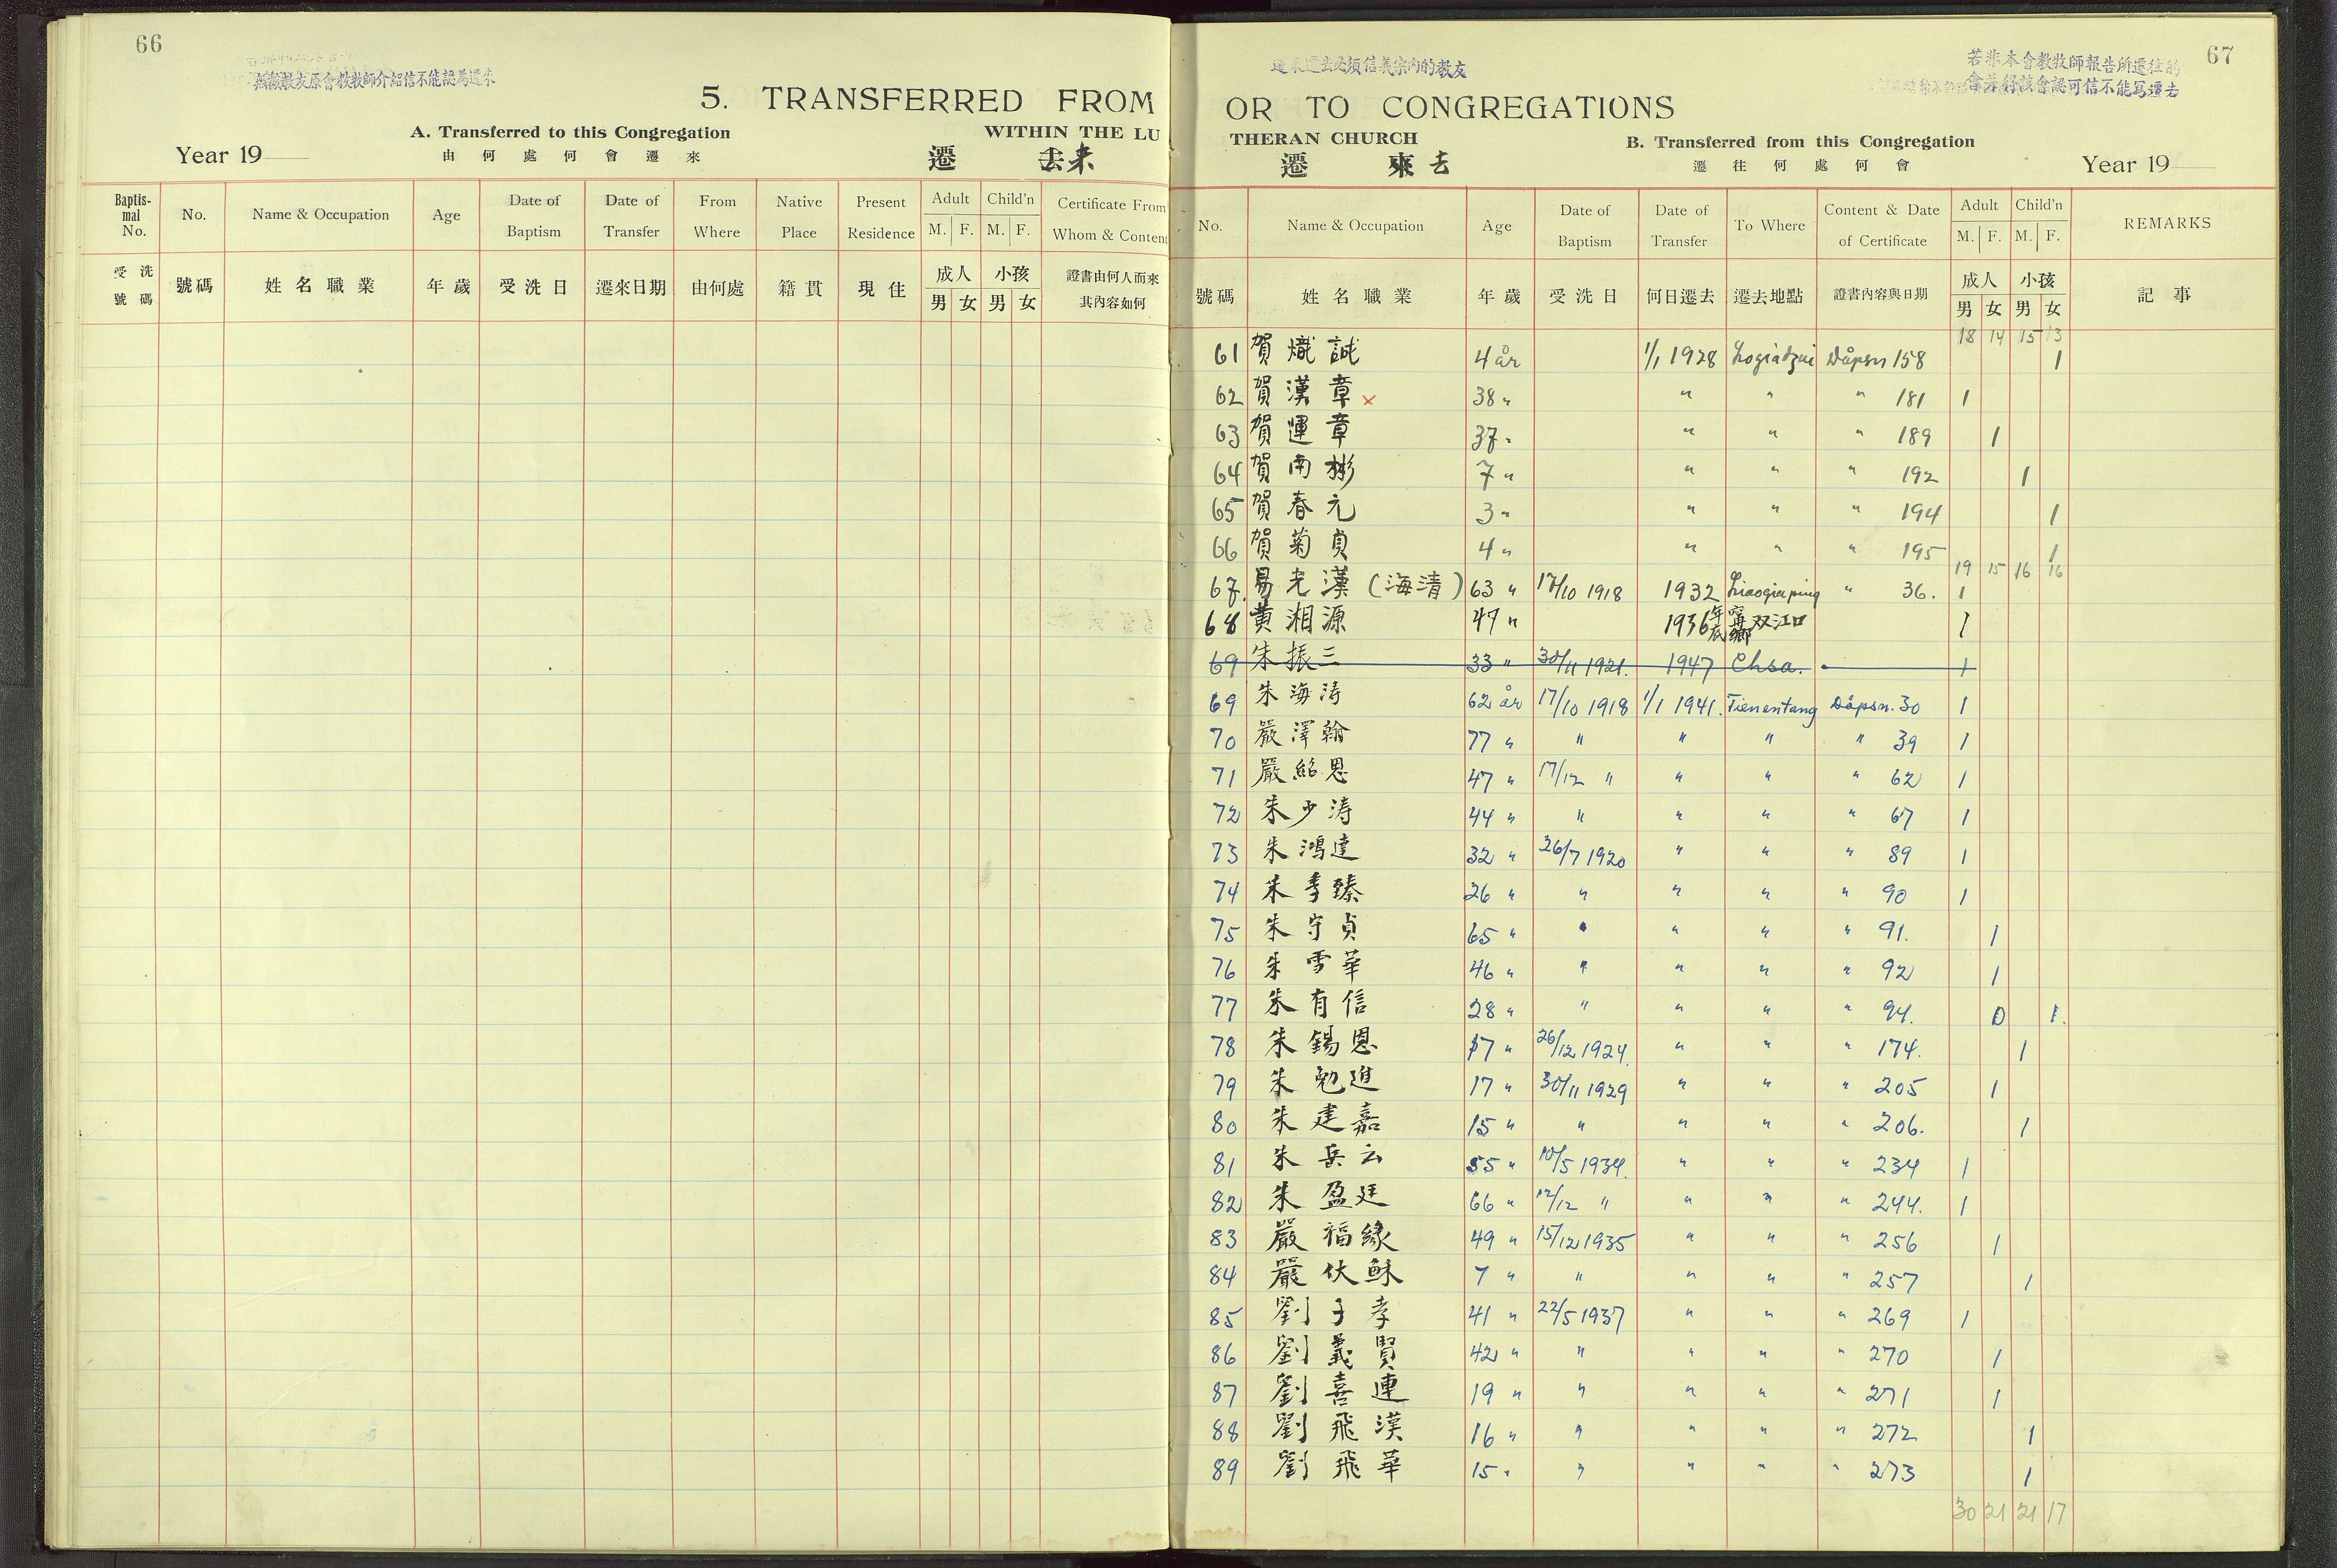 66
無該教友原會教牧師介紹信不能認爲遷來
5. TRANSFERRED FROM
A. Transferred to this Congregation
WITHIN THE LU
Year 19
由何處何會遷來
遷 去来
Baptismal No. No. Name & Occupation Age Date of Baptism Date of Transfer From Where Native Place Present Residence Adult M. F. Child'n M. F. Certificate From Whom & Content
受洗號碼 號碼 姓名職業 年歲 受洗日 遷來日期 由何處 籍貫 現住 成人 男 女 小孩 男 女 證書由何人而來其內容如何
67
遷來遷去必須信義宗內的教友
若非本會教牧師報告所遷往的
會并得該會認可信不能爲遷去
OR TO CONGREGATIONS
THERAN CHURCH
B. Transferred from this Congregation
遷 來去
遷往何處何會
Year 19
No. Name & Occupation Age Date of Baptism Date of Transfer To Where Content & Date of Certificate Adult M. F. Child'n M. F. REMARKS
號碼 姓名職業 年歲 受洗日 何日遷去 遷去地點 證書內容與日期 成人 男 女 小孩 男 女 記事
18 14 15 13
61 賀熾誠 4 år 1/1 1928 Logiatzui Dåpsn 158 1
62 賀漢章 x 38 " " " " 181 1
63 賀運章 37 " " " " 189 1
64 賀南彬 7 " " " " 192 1
65 賀春元 3 " " " " 194 1
66 賀菊貞 4 " " " " 195 1
19 15 16 16
67. 易光漢 (海清) 63 " 17/10 1918 1932 Liaogiaping " 36. 1
68 黄湘源 47 " 1936年底 寧鄉双江口 1
69 朱振三 33 " 30/11 1921. 1947 Chsa. 1
69 朱海涛 62 år 17/10 1918 1/1 1941. Tienentang Dåpsn. 30 1
70 嚴澤翰 77 " " " " " 39 1
71 嚴紹恩 47 " 17/12 " " " " 62 1
72 朱少涛 44 " " " " " 67 1
73 朱鴻達 32 " 26/7 1920 " " " 89 1
74 朱季臻 26 " " " " " 90 1
75 朱守貞 65 " " " " " 91. 1
76 朱雪華 46 " " " " " 92 1
77 朱有信 28 " " " " " 94. 1.
78 朱錫恩 17 " 26/12 1924. " " " 174. 1
79 朱勉進 17 " 30/11 1929 " " " 205 1
80 朱建嘉 15 " " " " " 206. 1
81 朱岳云 55 " 10/5 1934. " " " 234 1
82 朱盈廷 66 " 12/12 " " " " 244. 1
83 嚴福緣 49 " 15/12 1935 " " " 256 1
84 嚴伏穌 7 " " " " " 257 1
85 劉子孝 41 " 22/5 1937 " " " 269 1
86 劉義賢 42 " " " " " 270 1
87 劉喜連 19 " " " " " 271 1
88 劉飛漢 16 " " " " " 272 1
89 劉飛華 15 " " " " " 273 1
30 21 21 17